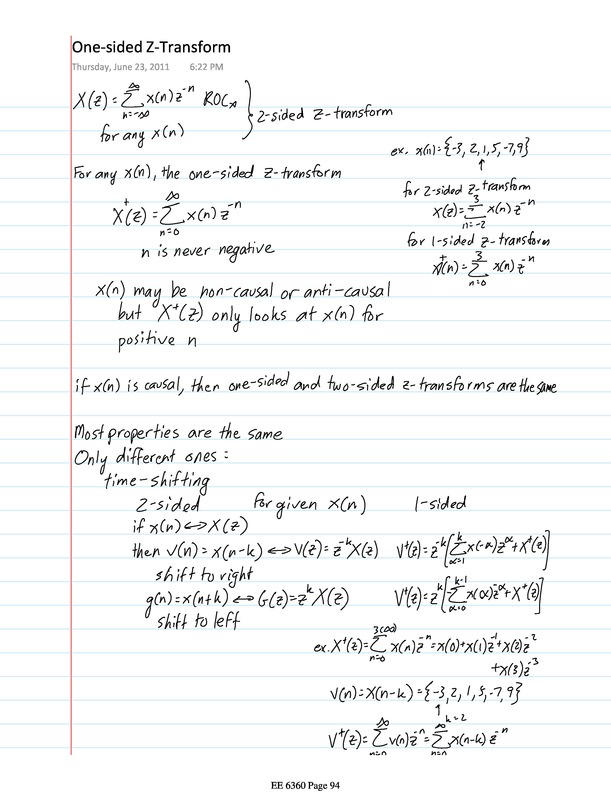 One-sided Z-Transform
Thursday, June 23, 2011 6:22 PM
X(z) = ∑_{n=-∞}^{∞} x(n) z^{-n} ROC_x
for any x(n)
} 2-sided Z-transform
ex. x(n) = {-3, 2, 1, 5, -7, 9}
↑
For any x(n), the one-sided Z-transform
X⁺(z) = ∑_{n=0}^{∞} x(n) z^{-n}
n is never negative
for 2-sided Z-transform
X(z) = ∑_{n=-2}^{3} x(n) z^{-n}
for 1-sided Z-transform
X⁺(n) = ∑_{n=0}^{3} x(n) z^{-n}
x(n) may be non-causal or anti-causal
but X⁺(z) only looks at x(n) for
positive n
if x(n) is causal, then one-sided and two-sided z-transforms are the same
Most properties are the same
Only different ones:
time-shifting
2-sided for given x(n) 1-sided
if x(n) ↔ X(z)
then v(n) = x(n-k) ↔ V(z) = z^{-k} X(z) V⁺(z) = z^{-k} [∑_{α=1}^{k} x(-α) z^{α} + X⁺(z)]
shift to right
g(n) = x(n+k) ↔ G(z) = z^{k} X(z) V⁺(z) = z^{k} [∑_{α=0}^{k-1} x(α) z^{-α} + X⁺(z)]
shift to left
ex. X⁺(z) = ∑_{n=0}^{3(∞)} x(n) z^{-n} = x(0) + x(1) z^{-1} + x(2) z^{-2}
+ x(3) z^{-3}
v(n) = x(n-k) = {-3, 2, 1, 5, -7, 9}
↑ k=2
V⁺(z) = ∑_{n=0}^{∞} v(n) z^{-n} = ∑_{n=0}^{∞} x(n-k) z^{-n}
EE 6360 Page 94